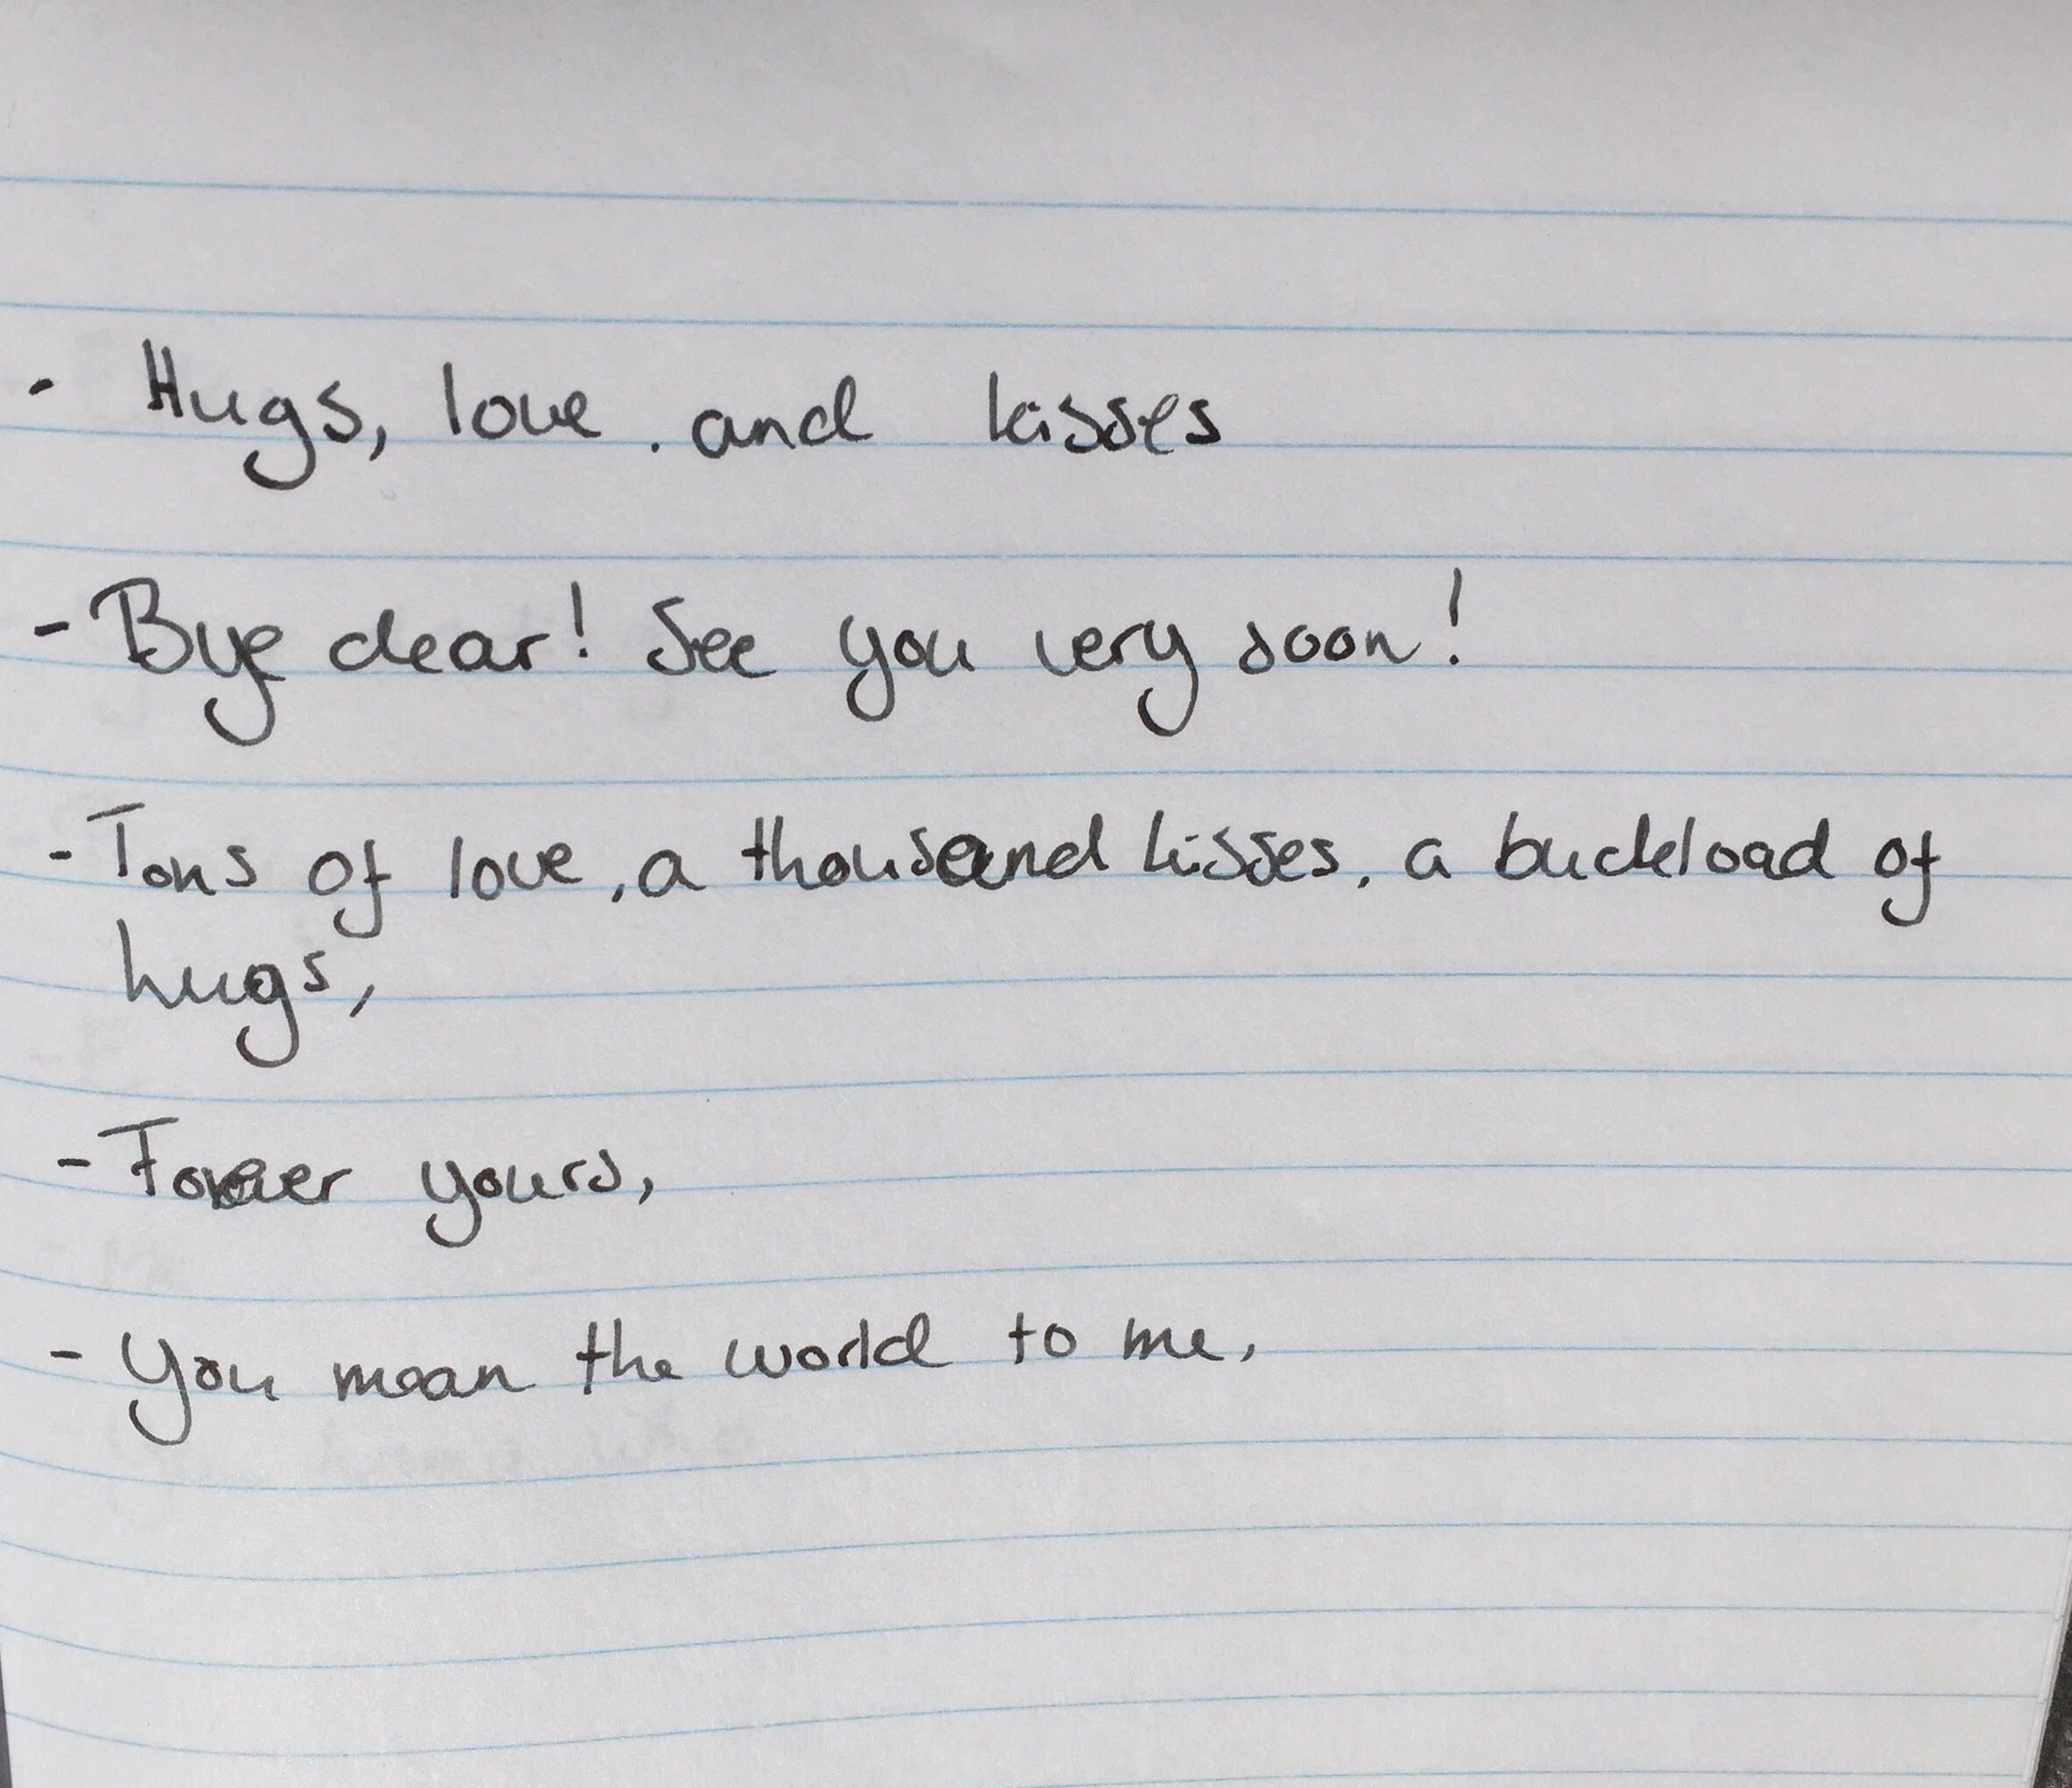 - Hugs, love. and kisses
- Bye dear! See you very soon!
- Tons of love, a thousand kisses, a buckload of
hugs,
- Forever yours,
- You mean the world to me,